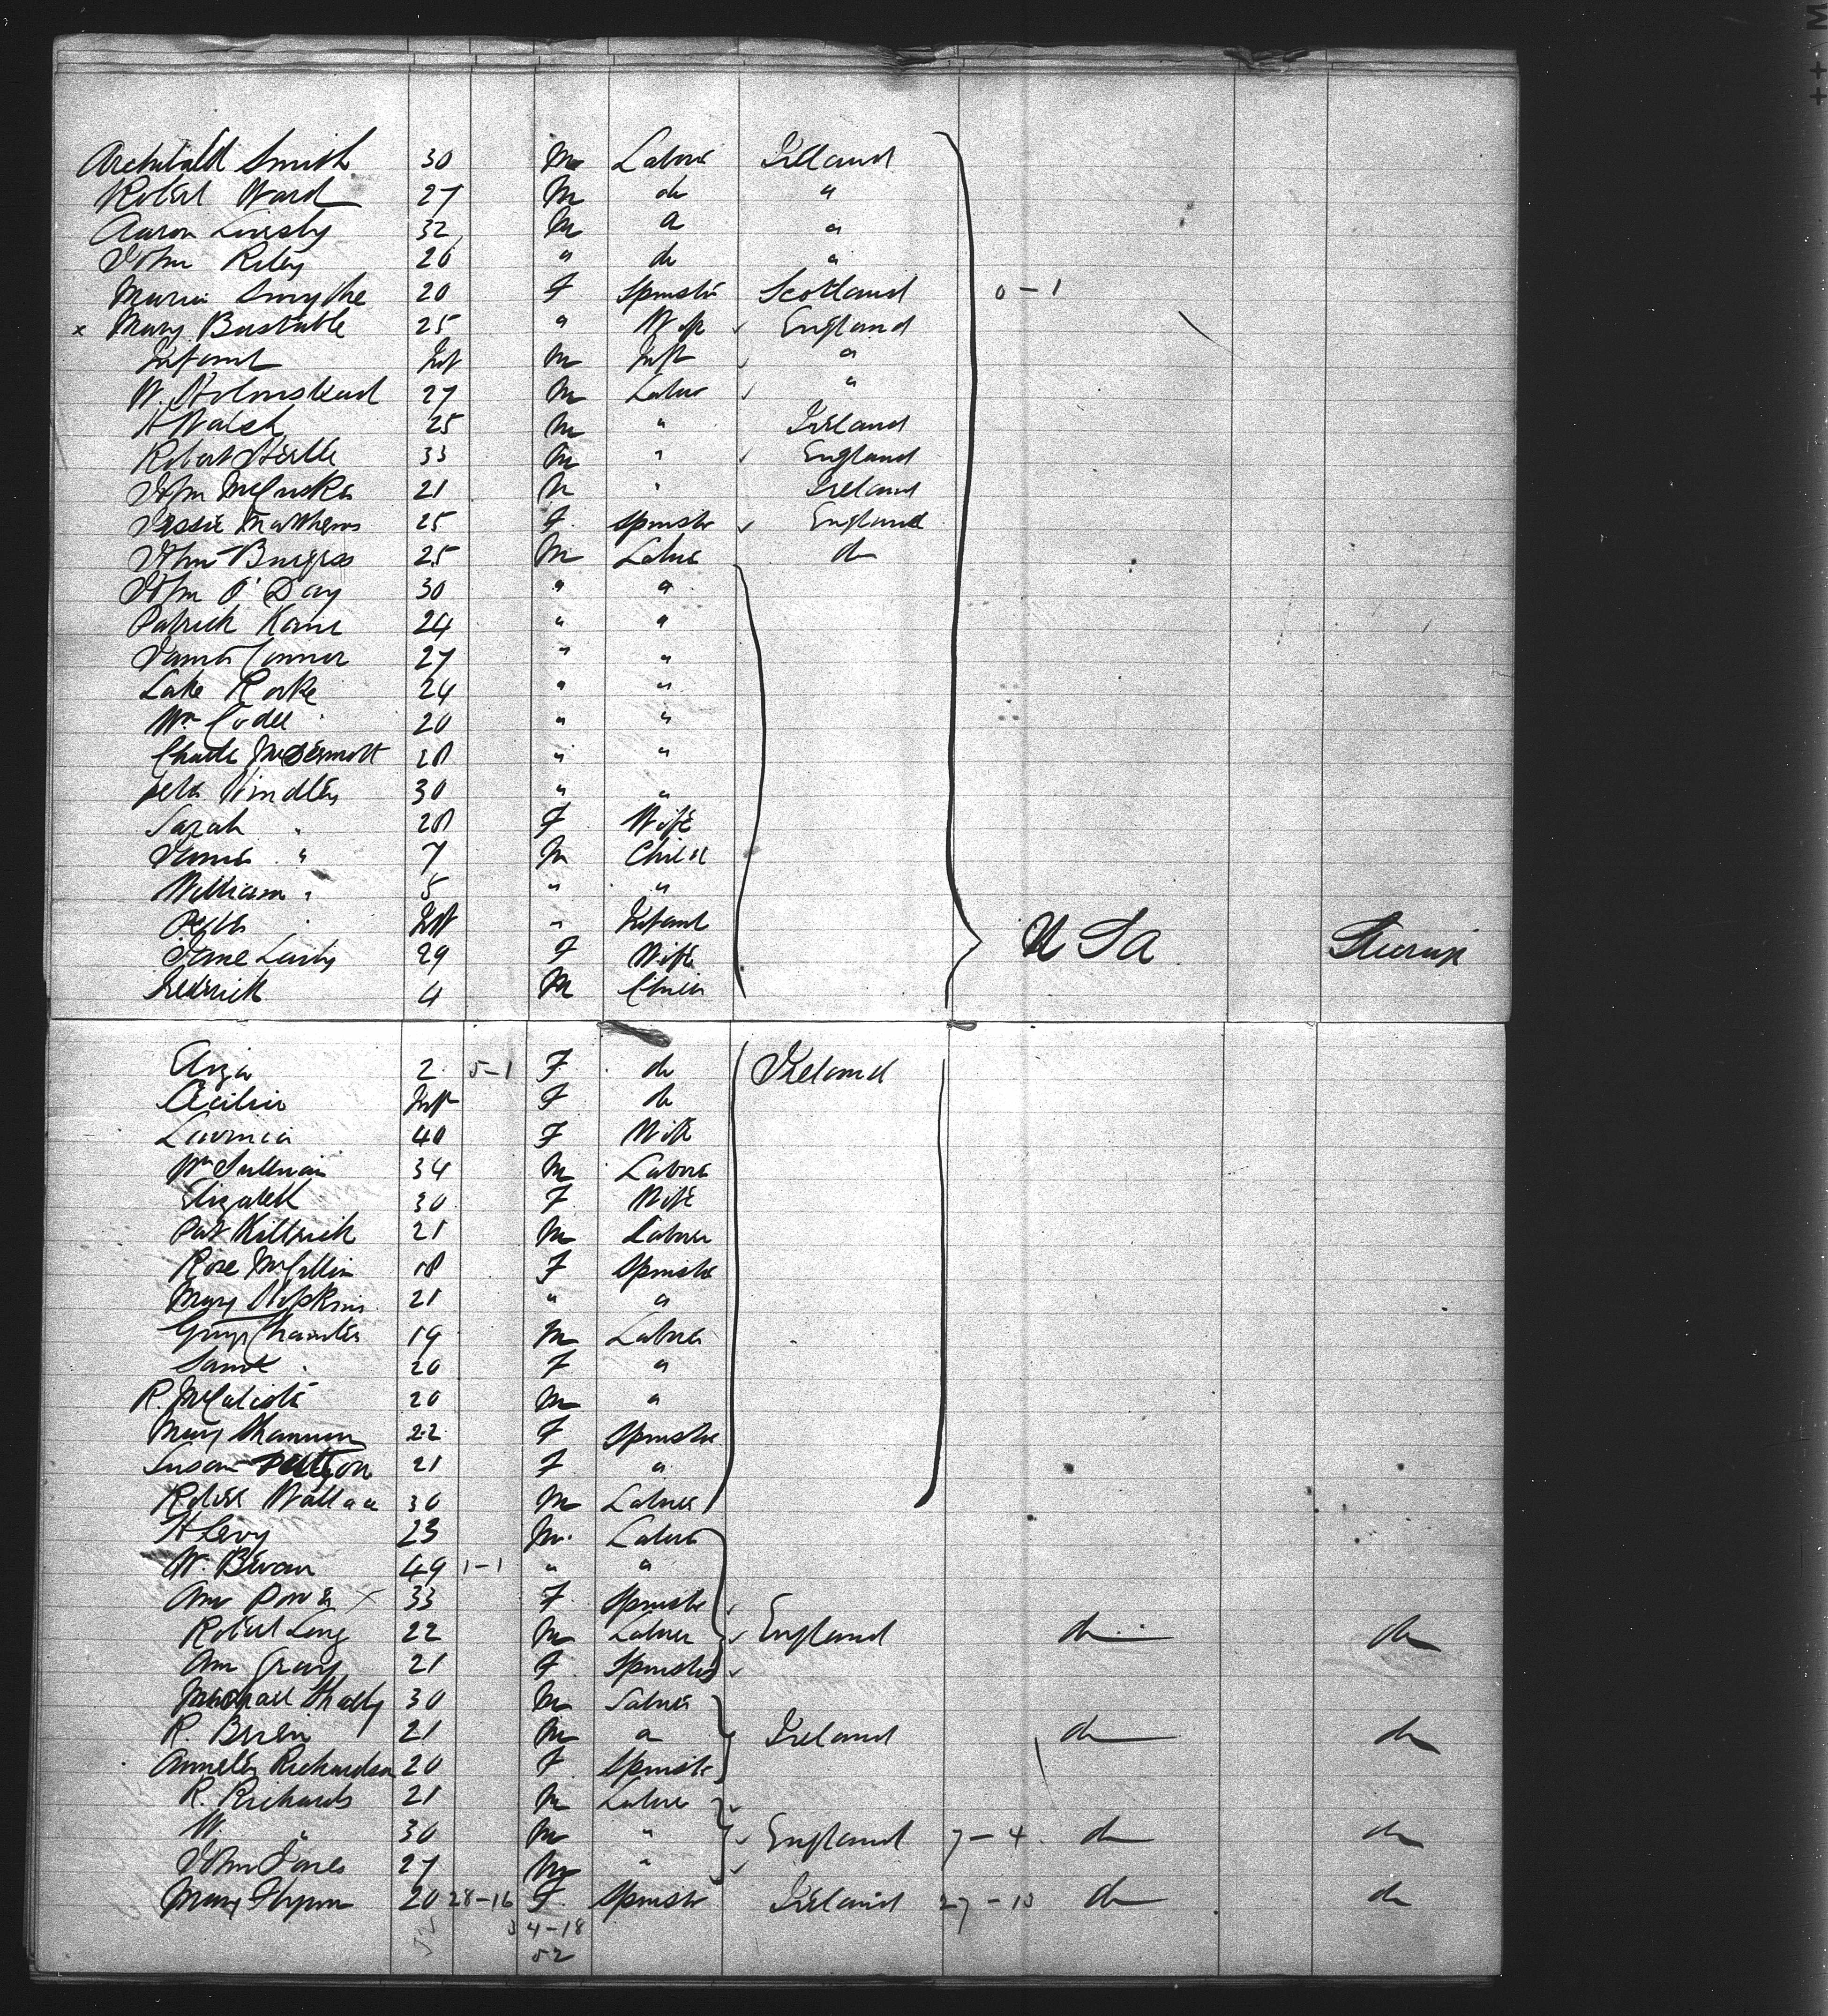 Archibald Smith 30 M Labour Ireland
Robert Ward 27 M do "
Aaron 32 M a "
John Riley 20 " do "
Maria Smythe 20 F Spinster Scotland 0-1
x Mary Bustable 25 " Wife ✓ England
Infant Inft M Inft ✓ "
W. Holmstead 27 M Labor ✓ "
H Walsh 25 M " Ireland
Robert 33 M " ✓ England
John McCusker 21 M " Ireland
Jessie Matthews 25 F Spinster ✓ England
John Burgess 25 M Labor do
John O'Day 30 " "
Patrick Kane 24 " "
James Connor 27 " "
Luke Rorke 24 " "
Wm Codee 20 " "
Charle McDermott 28 " "
Peter Windley 30 " "
Sarah " 28 F Wife
James " 7 M Child
William " 5 " "
Peter " Inft " Infant USA
Jane 29 F Wife
Fredrick 4 M Child
Eliza 2 5-1 F do Ireland
Cecilia Inft F do
Lavinia 40 F Wife
Wm Sullivan 34 M Laborer
Elizabeth 30 F Wife
Pat Killrick 21 M Laborer
Rose McCallin 18 F Spinster
Mary Hopkins 21 " "
19 M Laborer
20 F "
R. 20 M "
Mary Shannon 22 F Spinster
Susan Pattison 21 F "
Robert Wallace 30 M Laborer
H Levy 23 M Labore
W. Bevan 49 1-1 " "
Ann Power x 33 F Spinster ✓
Robert Long 22 M Laborer ✓ England do do
Ann Gray 21 F Spinster ✓
Michael Shally 30 M Laborer
R. 21 M a Ireland do do
Richardson 20 F Spinster
R. Richards 21 M Labore ✓
W. " 30 M " ✓ England 7-4 do do
John Jones 27 M " ✓
Mary Flynn 20 28-16 F Spinster Ireland 27-13 do do
34-18
52